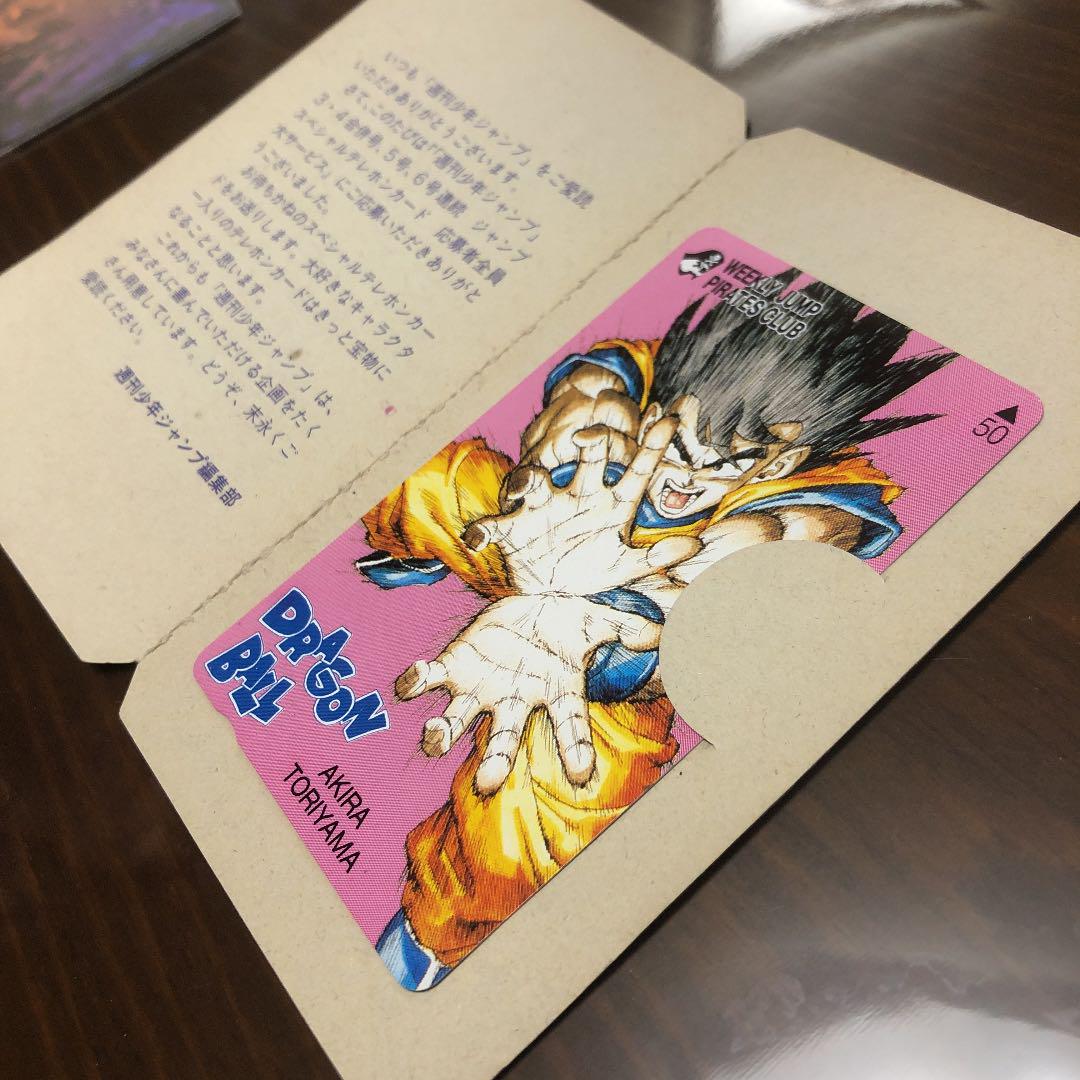 いつも「週刊少年ジャンプ」をご愛読
いただきありがとうございます。
さて、このたびは「週刊少年ジャンプ」
3・4合併号、5号、6号連続 ジャンプ
スペシャルテレホンカード 応募者全員
大サービス」にご応募いただきありがと
うございました。
お待ちかねのスペシャルテレホンカー
ドをお送りします。大好きなキャラクタ
ー入りのテレホンカードはきっと宝物に
なることと思います。
これからも「週刊少年ジャンプ」は、
みなさんに喜んでいただける企画をたく
さん用意しています。どうぞ、末永くご
愛読ください。
週刊少年ジャンプ編集部
WEEKLY JUMP
PIRATES CLUB
50
DRAGON
BALL
AKIRA
TORIYAMA